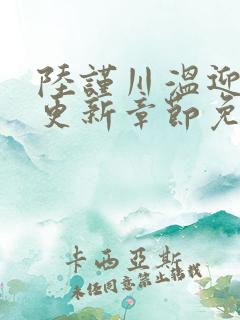 陸謹川溫迎
更新章節免
卡西亞斯
未經同意禁止轉載